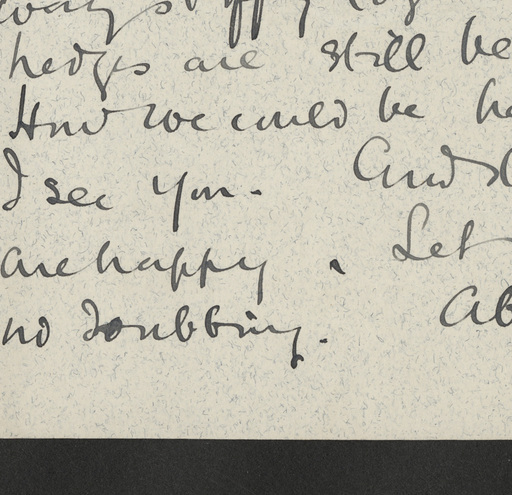 hedges are still be
How we could be ha
I see you. And
are happy. Let
no doubting. Ab